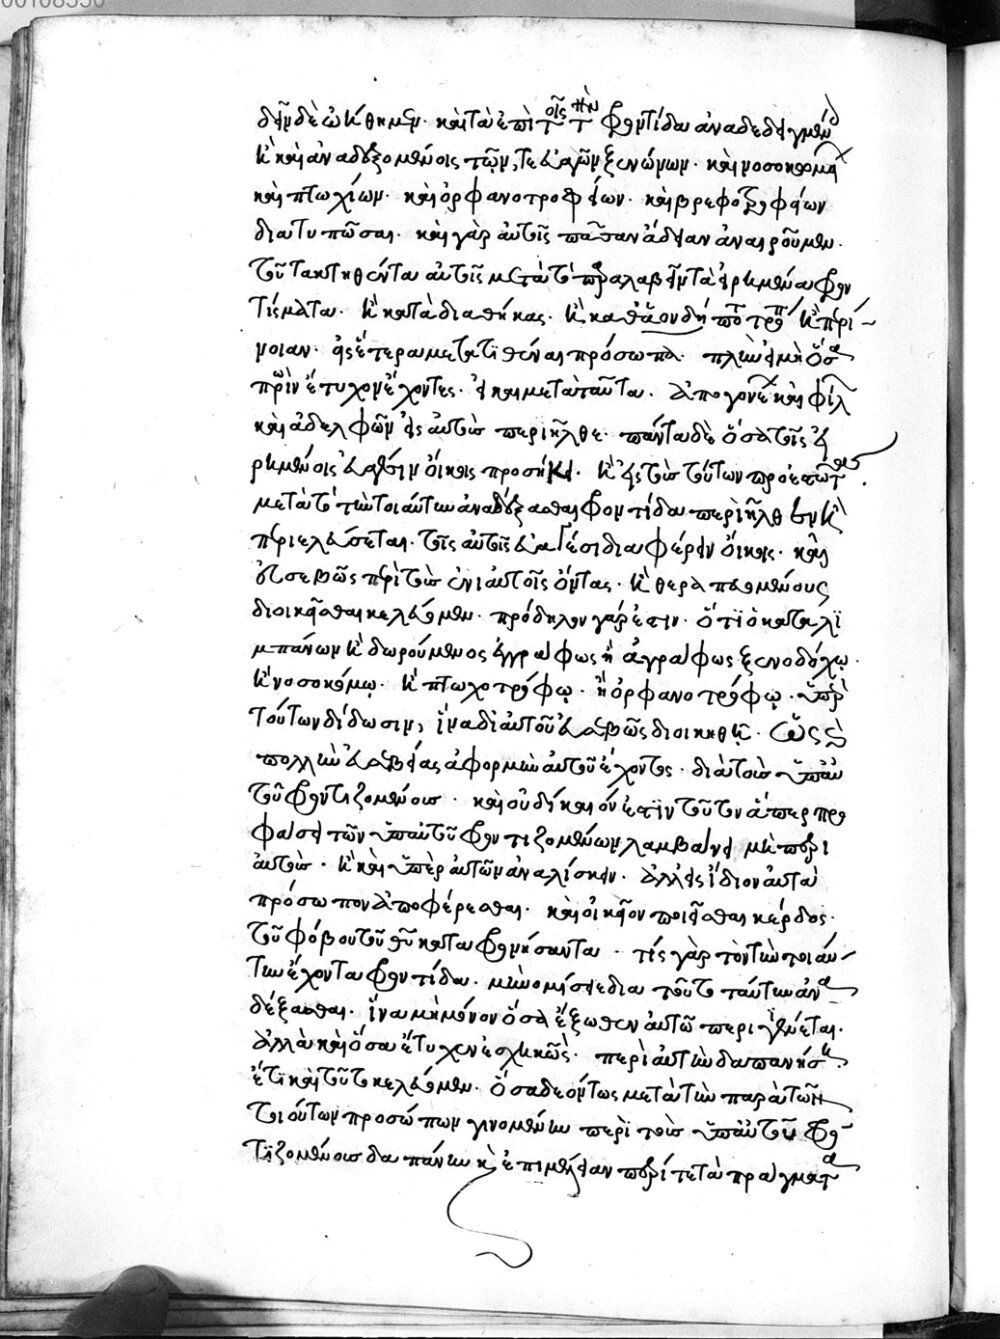 00108350
δεῖν δὲ ᾠήθημεν. καὶ τὰ ἐπὶ τοῖς τὴν φροντίδα ἀναδεδεγμένοις
κ(αὶ) καὶ ἀναδεξομένοις τῶν τε εὐαγῶν ξενώνων. καὶ νοσοκομείων
καὶ πτωχίων. καὶ ὀρφανοτροφείων. καὶ βρεφοτροφείων
διατυπῶσαι. καὶ γὰρ αὐτοῖς πᾶσαν ἄδειαν ἀναιροῦμεν.
τοῦ τὰ κτηθέντα αὐτοῖς μετὰ τὸ παραλαβεῖν τὰ εἰρημένα φρον
τίσματα. κ(αὶ) κατὰ διαθήκας. κ(αὶ) καθ' οἱονδήποτε τρόπον κ(αὶ) περί
νοιαν. εἰς ἕτερα μετατιθέναι πρόσωπα. πλὴν εἰ μὴ ὅσα
πρὶν ἔτυχον ἔχοντες. ἢ καὶ μετὰ ταῦτα. ἀπὸ γονέων καὶ φίλων
καὶ ἀδελφῶν εἰς αὐτοὺς περιῆλθε. πάντα δὲ ὅσα τοῖς εἰ
ρημένοις εὐαγέσιν οἴκοις προσήκει. κ(αὶ) εἰς τοὺς τούτων προεστῶτας
μετὰ τὸ τὴν τοιαύτην ἀναδέξασθαι φροντίδα περιῆλθεν κ(αὶ)
περιελεύσεται. τοῖς αὐτοῖς εὐαγέσι διαφέρειν οἴκοις. καὶ
εὐσεβῶς περὶ τοὺς ἐνιαυτοῖς ὄντας. κ(αὶ) θεραπευομένους
διοικεῖσθαι κελεύομεν. πρόδηλον γάρ ἐστιν. ὅτι ὁ καταλι
μπάνων κ(αὶ) δωρούμενος ἐγγράφως ἢ ἀγράφως ξενοδόχῳ.
κ(αὶ) νοσοκόμῳ. κ(αὶ) πτωχοτρόφῳ. ἢ ὀρφανοτρόφῳ. ὑπὲρ
τούτων δίδωσιν, ἵνα δι αὐτοῦ εὐσεβῶς διοικηθῇ. ὡς
πολλὴν εὐσεβείας ἀφορμὴν αὐτοῦ ἔχοντος. διὰ τοὺς ὑπ' αὐ
τοῦ φροντιζομένους. καὶ οὐ δίκαιόν ἐστιν τοῦτον ἅπερ προ
φάσει τῶν ὑπ' αὐτοῦ φροντιζομένων λαμβάνει μὴ περὶ
αὐτοὺς. κ(αὶ) καὶ ὑπὲρ αὐτῶν ἀναλίσκειν. ἀλλ' εἰς ἴδιον αὐτὰ
πρόσωπον ἀποφέρεσθαι. καὶ οἰκεῖον ποιεῖσθαι κέρδος.
τοῦ φόβου τοῦ θεοῦ καταφρονήσαντα. τίς γὰρ τὸν τὴν τοιαύ
την ἔχοντα φροντίδα. μὴ νομίσειε δια τοῦτο ταύτην ἀνα
δέξασθαι. ἵνα μὴ μόνον ὅσα ἔξωθεν αὐτῷ περιγένεται.
ἀλλὰ καὶ ὅσα ἔτυχεν ἐσχηκὼς. περὶ αὐτὴν δαπανήσει.
ἔτι καὶ τοῦτο κελεύομεν. ὅσα δεόντως μετὰ τὴν παρὰ τῶν
τοιούτων προσώπων γινομένην περὶ τοὺς ὑπ' αὐτοῦ φρον
τιζομένους δαπάνην κ(αὶ) ἐπιμέλειαν περί τε τὰ πράγματα